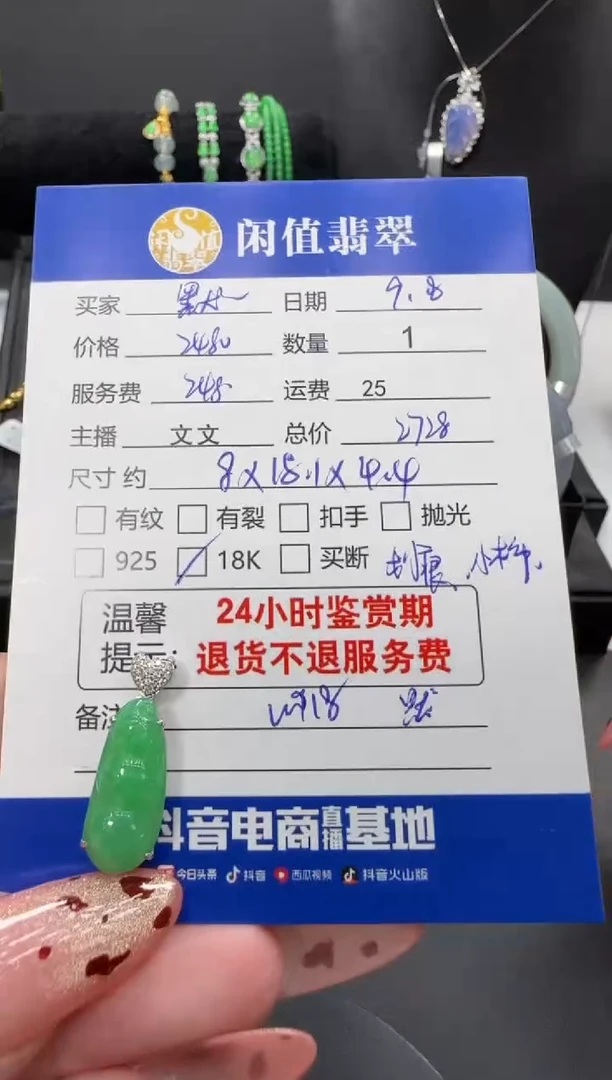 闲值翡翠
闲值翡翠
买家 日期 9.8
价格 2480 数量 1
服务费 248 运费 25
主播 文文 总价 2728
尺寸约 8X15.1X4.4
有纹 有裂 扣手 抛光
925 18K 买断 划痕、小棉、
温馨 24小时鉴赏期
提示: 退货不退服务费
备注
抖音电商直播基地
今日头条 抖音 西瓜视频 抖音火山版